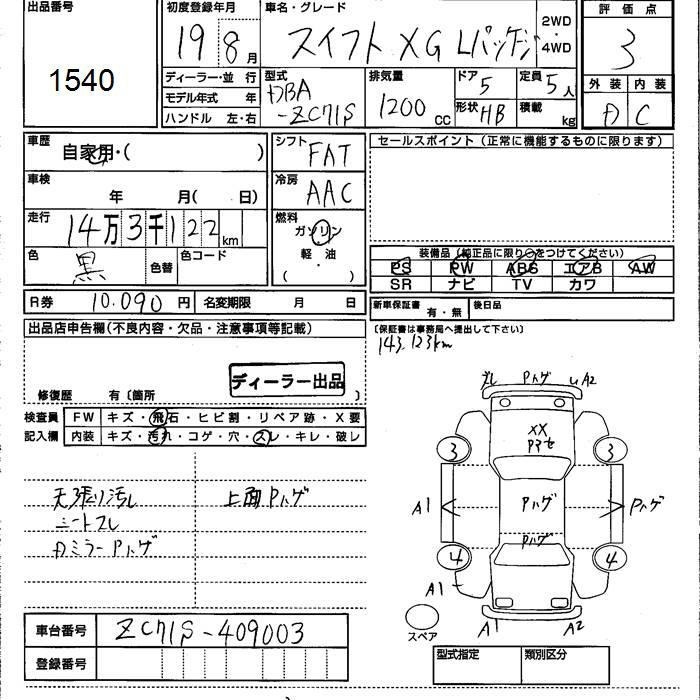 出品番号
1540
初度登録年月
19 8月
車名・グレード
スイフト XG Lパッケージ
2WD
・
4WD
評価点
3
ディーラー・並行
モデル年式 年
ハンドル 左・右
型式
DBA
-ZC71S
排気量
1200 CC
ドア 5
形状 HB
定員 5人
積載 kg
外装 内装
D C
車歴 自家用・( )
車検 年 月( 日)
走行 14万3千122km
色 黒 色替 色コード
シフト
FAT
冷房
AAC
燃料
ガソリン
軽・油
( )
セールスポイント(正常に機能するものに限ります)
装備品(純正品に限り○をつけてください)
PS PW ABS エアB AW
SR ナビ TV カワ
R券 10.090円 名変期限 月 日
新車保証書 有・無 後日品
(保証書は事務局へ提出して下さい)
143,123km
出品店申告欄(不良内容・欠品・注意事項等記載)
ディーラー出品
修復歴 有〔箇所 〕
検査員 FW キズ・飛石・ヒビ割・リペア跡・X要
記入欄 内装 キズ・汚れ・コゲ・穴・スレ・キレ・破レ
天張り汚レ 上面Pハゲ
シートスレ
Dミラー Pハゲ
Pハゲ A2
XX
Pマセ
3 3
A1 Pハゲ Pハゲ
Pハゲ
4 4
A1
A1 A2
スペア
車台番号 ZC71S-409003
登録番号
型式指定 類別区分